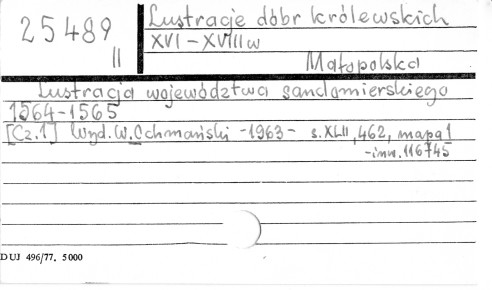 25489
II
Lustracje dóbr królewskich
XVI-XVIII w
Małopolska
Lustracja województwa sandomierskiego
1564-1565
[Cz.1] Wyd. W. Ochmański -1963- s. XLII, 462, mapa 1
-inw. 116745
DUJ 496/77. 5000